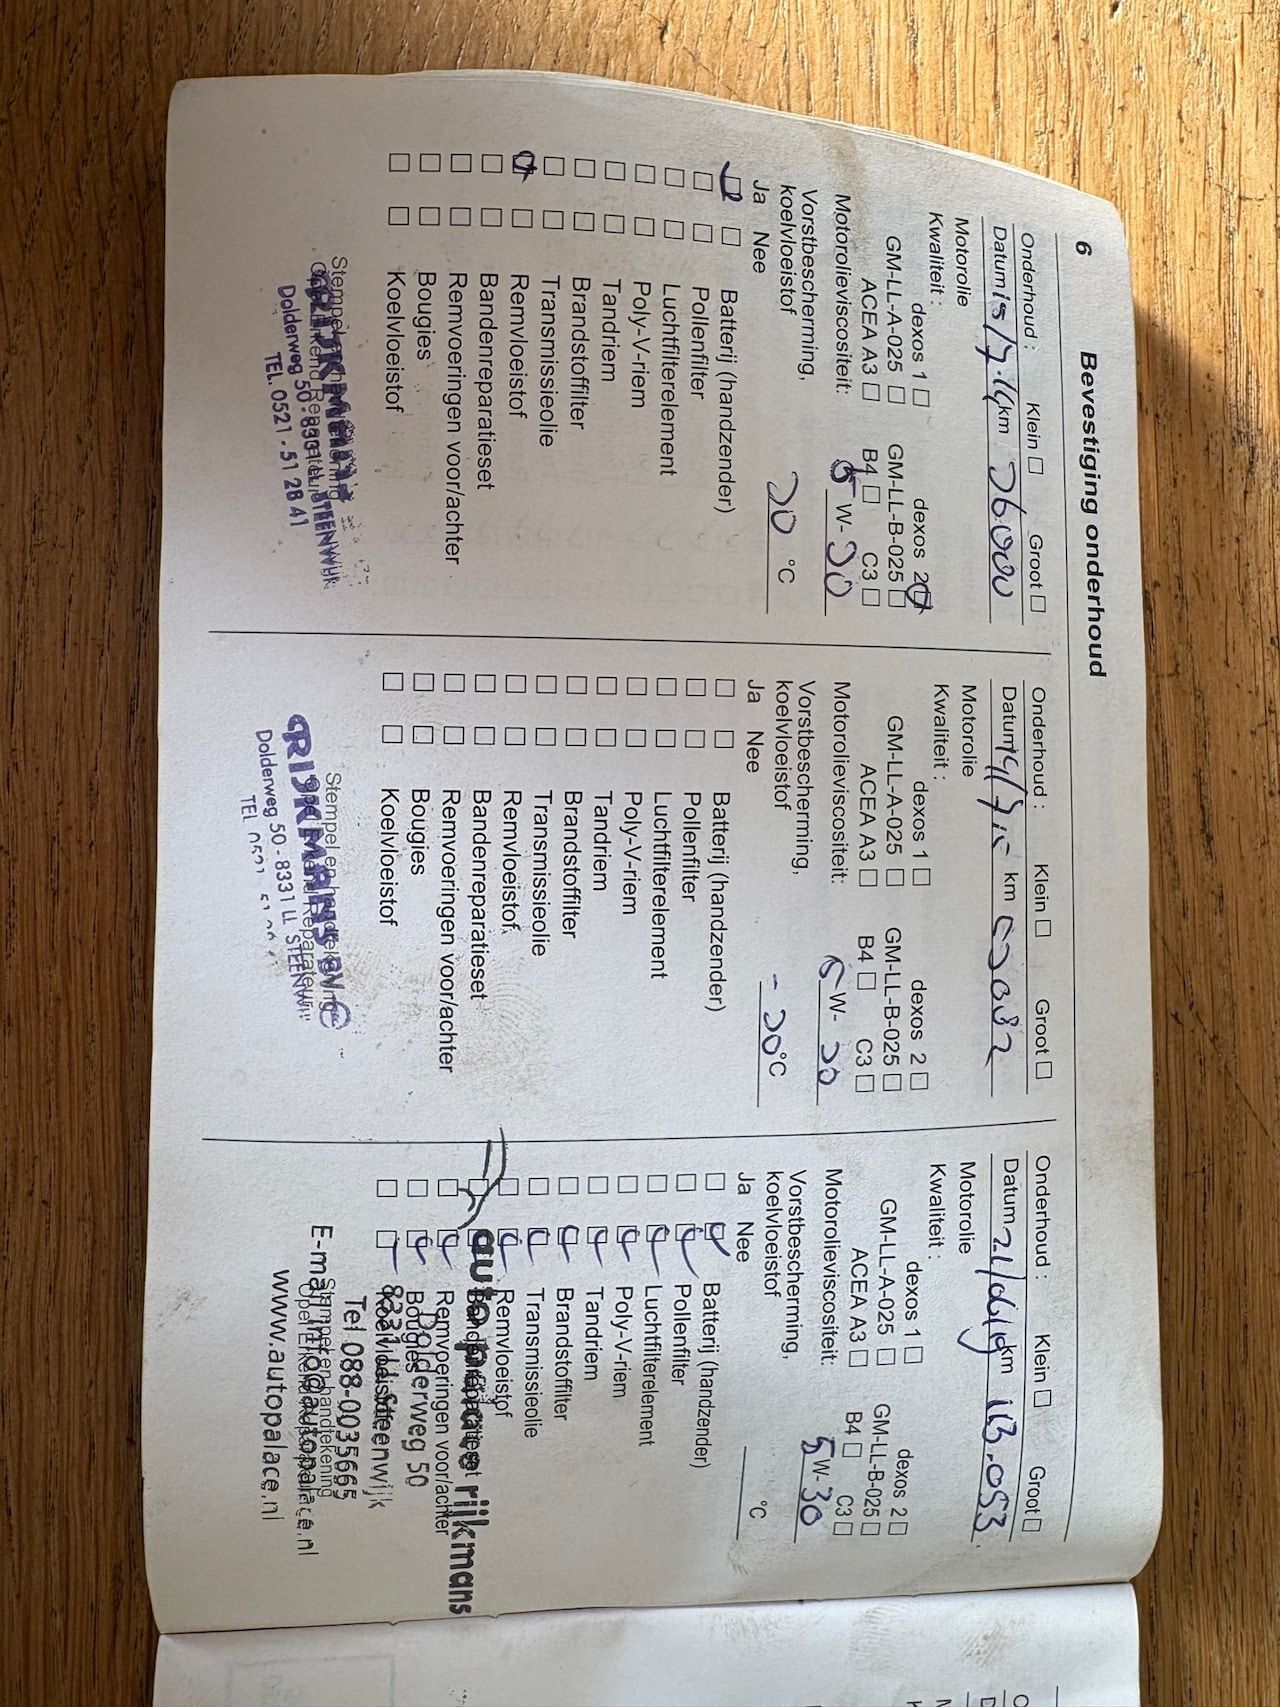 6 Bevestiging onderhoud
Onderhoud : Klein Groot
Datum 15/7.14 km 36000
Motorolie
Kwaliteit :
dexos 1 dexos 2
GM-LL-A-025 GM-LL-B-025
ACEA A3 B4 C3
Motorolieviscositeit: 5 W- 30
Vorstbescherming,
koelvloeistof 30 °C
Ja Nee
Batterij (handzender)
Pollenfilter
Luchtfilterelement
Poly-V-riem
Tandriem
Brandstoffilter
Transmissieolie
Remvloeistof
Bandenreparatieset
Remvoeringen voor/achter
Bougies
Koelvloeistof
Dolderweg 50 - 8331 LL STEENWIJK
TEL. 0521 - 51 28 41
Onderhoud : Klein Groot
Datum km
Motorolie
Kwaliteit :
dexos 1 dexos 2
GM-LL-A-025 GM-LL-B-025
ACEA A3 B4 C3
Motorolieviscositeit: 5 W- 30
Vorstbescherming,
koelvloeistof - 30 °C
Ja Nee
Batterij (handzender)
Pollenfilter
Luchtfilterelement
Poly-V-riem
Tandriem
Brandstoffilter
Transmissieolie
Remvloeistof
Bandenreparatieset
Remvoeringen voor/achter
Bougies
Koelvloeistof
Stempel en handtekening
Opel Erkend Reparateur
RIJKMANS BV
Dolderweg 50 - 8331 LL STEENWIJK
TEL 0521
Onderhoud : Klein Groot
Datum km 113.053
Motorolie
Kwaliteit :
dexos 1 dexos 2
GM-LL-A-025 GM-LL-B-025
ACEA A3 B4 C3
Motorolieviscositeit: 5 W- 30
Vorstbescherming,
koelvloeistof °C
Ja Nee
Batterij (handzender)
Pollenfilter
Luchtfilterelement
Poly-V-riem
Tandriem
Brandstoffilter
Transmissieolie
Remvloeistof
Bandenreparatieset
Remvoeringen voor/achter
Bougies
Koelvloeistof
auto palace rijkmans
Dolderweg 50
8331 LL Steenwijk
Tel 088-0035665
Stempel en handtekening
E-mail info@autopalace.nl
www.autopalace.nl